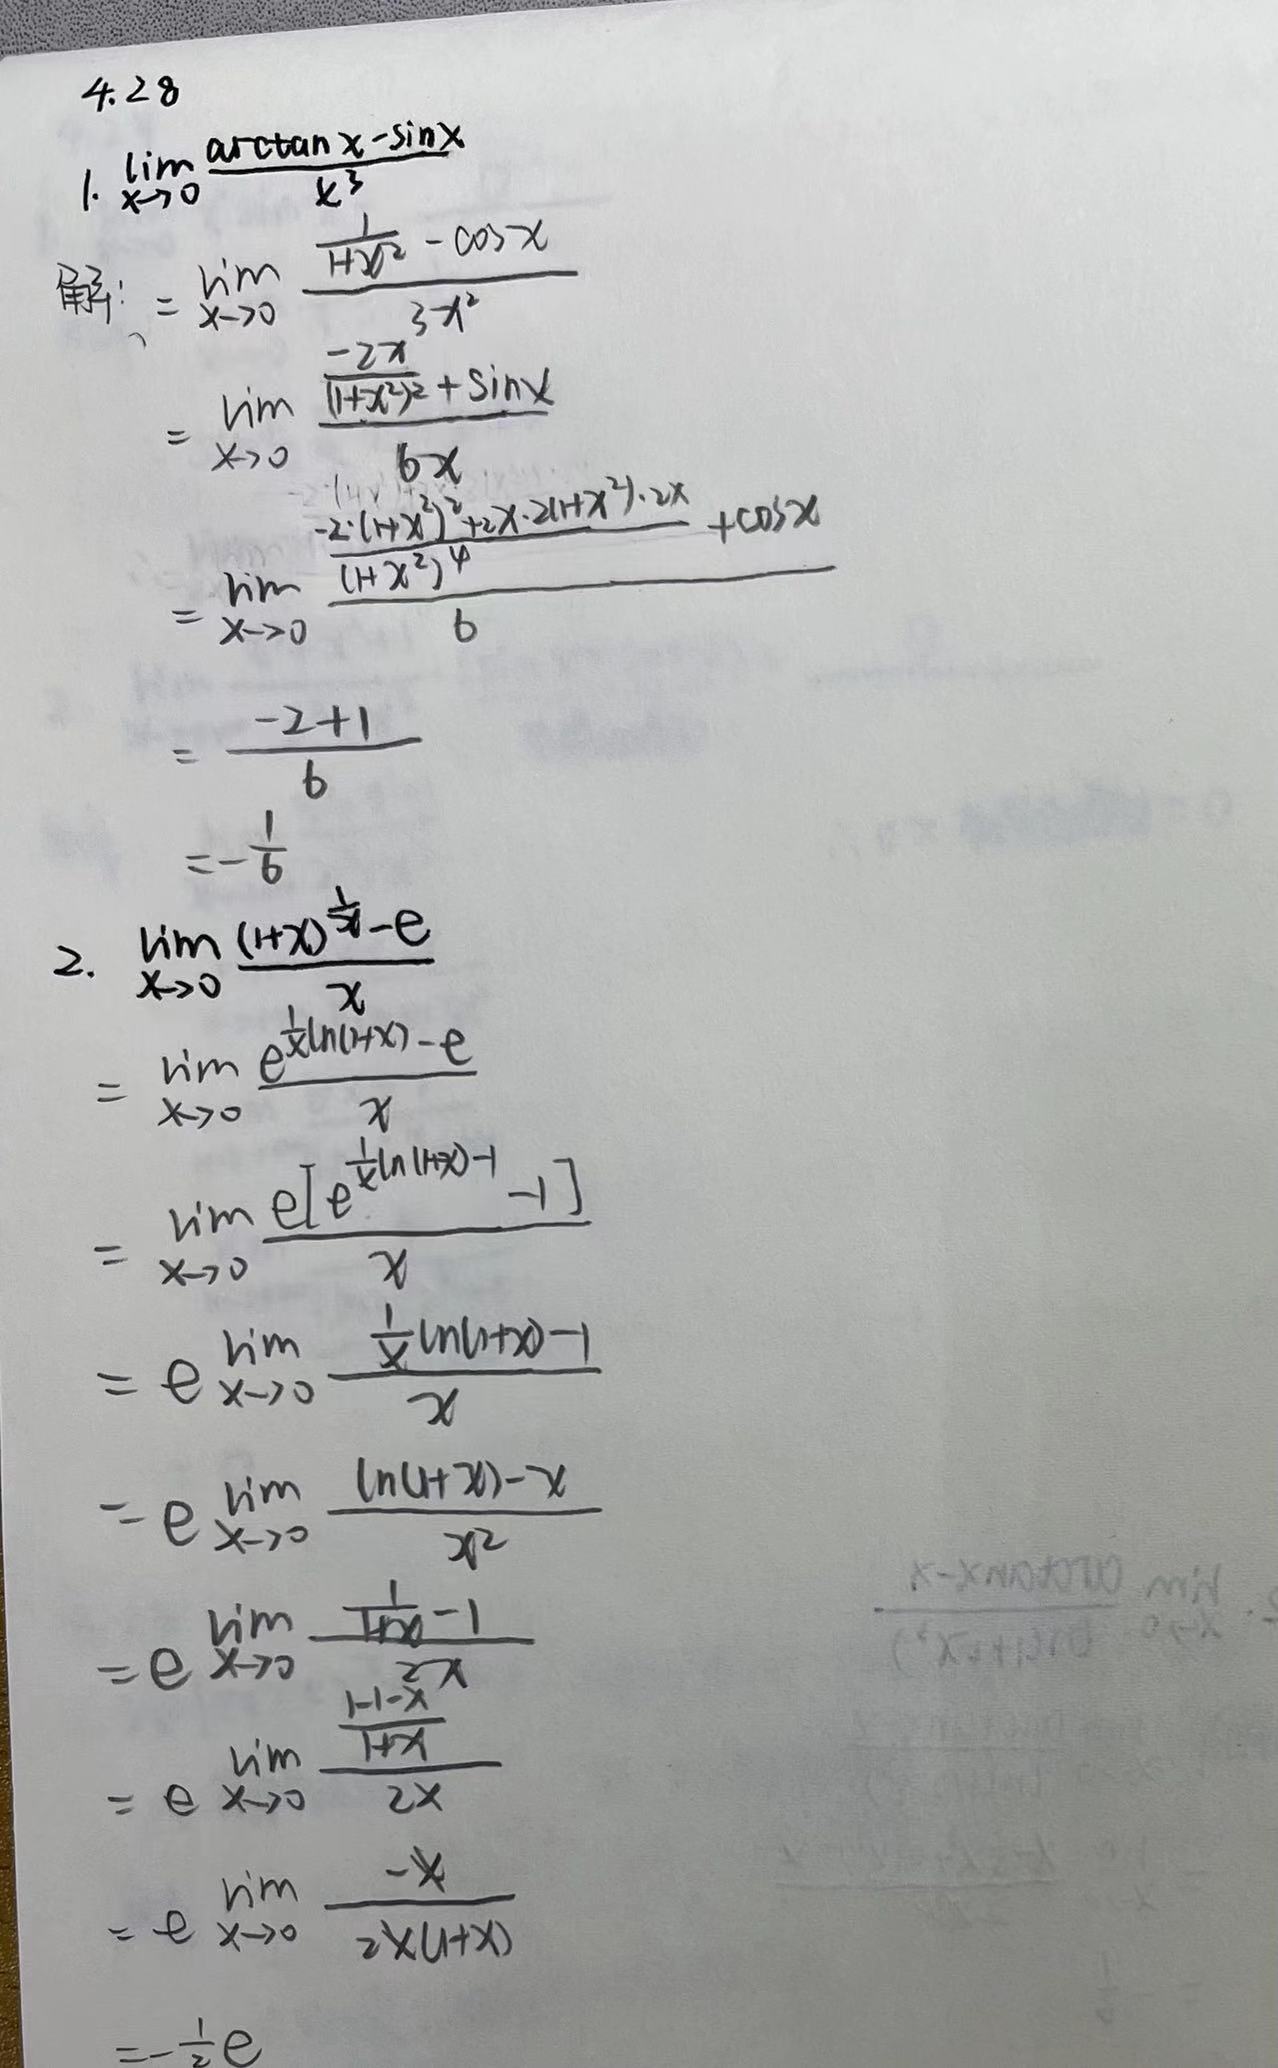 4.28
1. lim x→0 (arctanx-sinx)/x³
解: = lim x→0 (1/(1+x²) - cosx)/(3x²)
= lim x→0 (-2x/(1+x²)² + sinx)/(6x)
= lim x→0 ((-2·(1+x²)²+2x·2(1+x²)·2x)/(1+x²)⁴ + cosx)/6
= (-2+1)/6
= -1/6
2. lim x→0 ((1+x)^(1/x) - e)/x
= lim x→0 (e^(1/x ln(1+x)) - e)/x
= lim x→0 e[e^(1/x ln(1+x)-1) -1]/x
= e lim x→0 (1/x ln(1+x)-1)/x
= e lim x→0 (ln(1+x)-x)/x²
= e lim x→0 (1/(1+x) -1)/(2x)
= e lim x→0 ((1-1-x)/(1+x))/(2x)
= e lim x→0 -x/(2x(1+x))
= -1/2 e